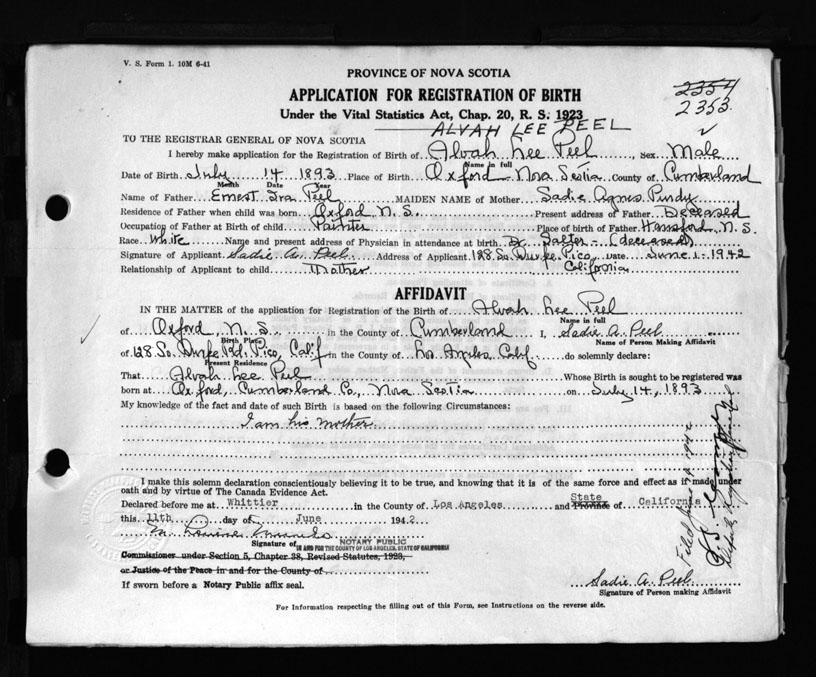 V. S. Form 1. 10M 6-41
PROVINCE OF NOVA SCOTIA
APPLICATION FOR REGISTRATION OF BIRTH
2354
2353
Under the Vital Statistics Act, Chap. 20, R. S. 1923
ALVAH LEE PEEL
TO THE REGISTRAR GENERAL OF NOVA SCOTIA
I hereby make application for the Registration of Birth of Alvah Lee Peel Sex Male
Name in full
Date of Birth July 14 1893 Place of Birth Oxford Nova Scotia County of Cumberland
Month Date Year
Name of Father Ernest Ira Peel MAIDEN NAME of Mother Sadie Agnes Purdy
Residence of Father when child was born Oxford N. S. Present address of Father Deceased
Occupation of Father at Birth of child Painter Place of birth of Father Hansford, N. S.
Race White Name and present address of Physician in attendance at birth Dr. Salter - (deceased)
Signature of Applicant Sadie A. Peel Address of Applicant 128 So. Durfee Pico, Date June 1 - 1942
California
Relationship of Applicant to child Mother
AFFIDAVIT
IN THE MATTER of the application for Registration of the Birth of Alvah Lee Peel
Name in full
of Oxford, N. S. in the County of Cumberland I, Sadie A. Peel
Birth Place Name of Person Making Affidavit
of 128 So. Durfee Rd. Pico, Calif in the County of Los Angeles, Calif. do solemnly declare:
Present Residence
That Alvah Lee Peel Whose Birth is sought to be registered was
born at Oxford, Cumberland Co., Nova Scotia on July 14, 1893
My knowledge of the fact and date of such Birth is based on the following Circumstances:
I am his mother.
I make this solemn declaration conscientiously believing it to be true, and knowing that it is of the same force and effect as if made under
oath and by virtue of The Canada Evidence Act.
Declared before me at Whittier in the County of Los Angeles and Province of California
State
this 11th day of June 1942
Signature of NOTARY PUBLIC
IN AND FOR THE COUNTY OF LOS ANGELES, STATE OF CALIFORNIA
Commissioner under Section 5, Chapter 38, Revised Statutes, 1923,
or Justice of the Peace in and for the County of
If sworn before a Notary Public affix seal.
Sadie A. Peel
Signature of Person making Affidavit
For Information respecting the filling out of this Form, see Instructions on the reverse side.